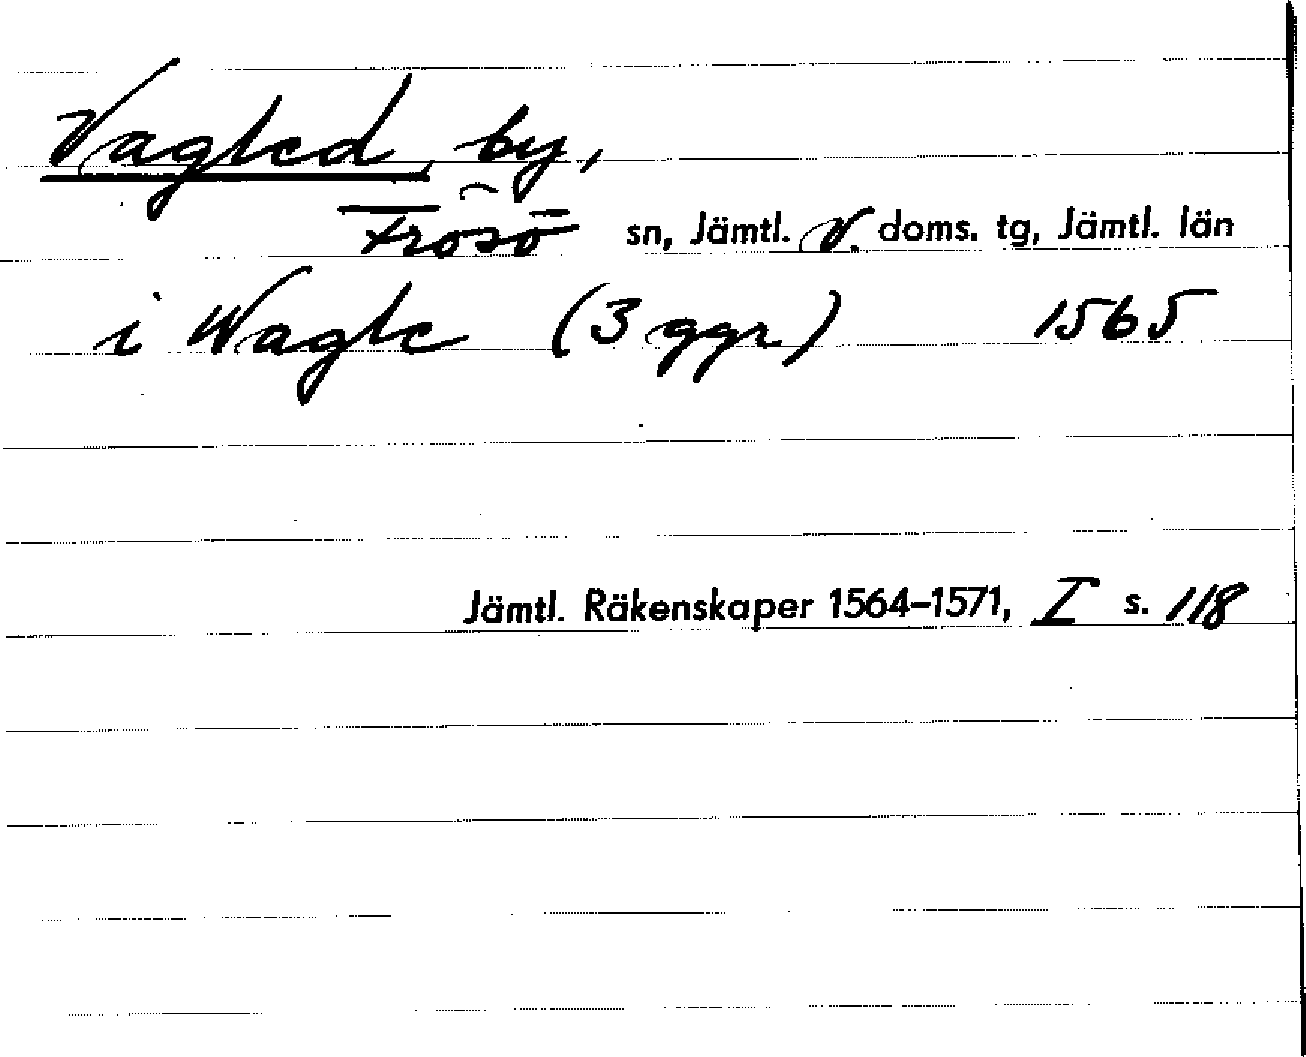 Vagled, by,
Frösö sn, Jämtl. V. doms. tg, Jämtl. län
i Wagle (3 ggr) 1565
Jämtl. Räkenskaper 1564–1571, I s. 118